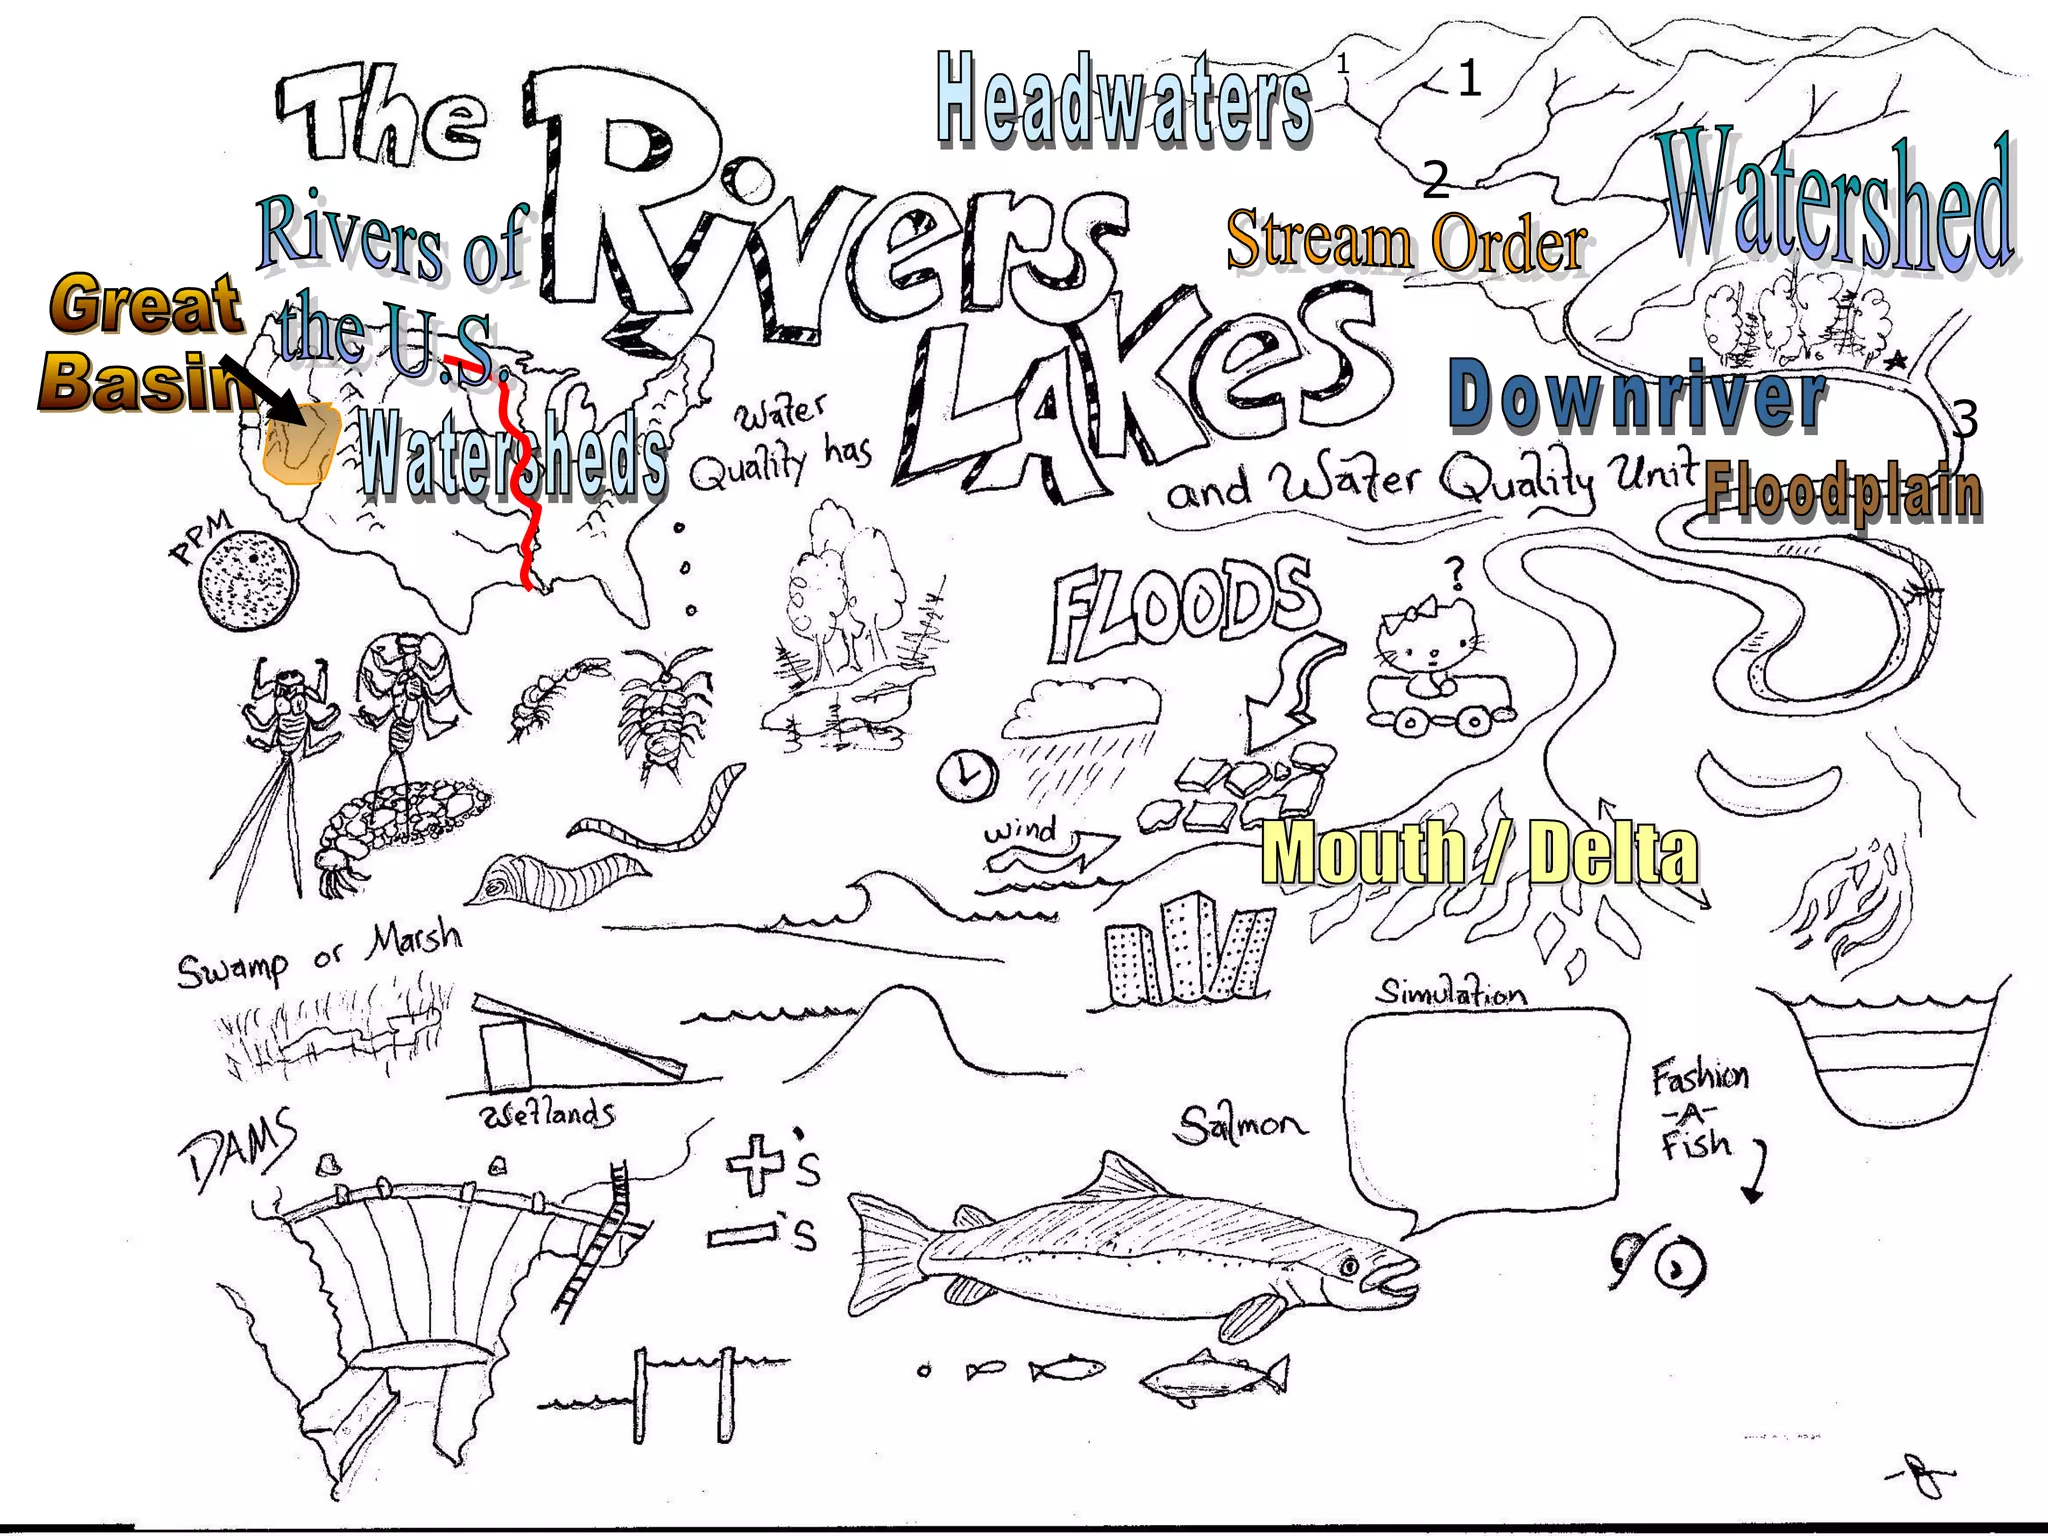 The
Rivers
Lakes
and Water Quality Unit
Headwaters
1
1
2
Stream Order
Watershed
Downriver
3
Floodplain
Rivers of
the U.S.
Great
Basin
Watersheds
Water
Quality has
PPM
FLOODS
?
wind
Mouth / Delta
Swamp or Marsh
Wetlands
Simulation
Fashion
-A-
Fish
Salmon
DAMS
+'s
-'s